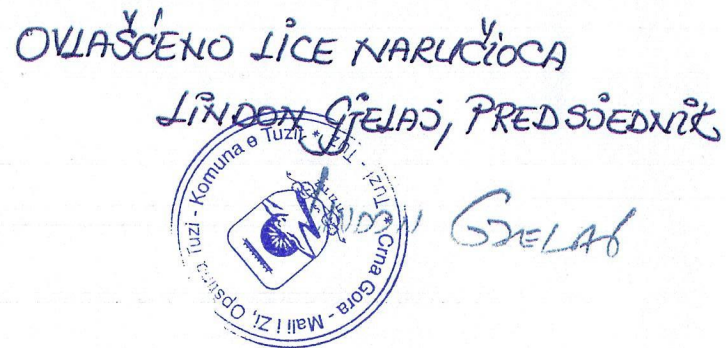 OVLAŠĆENO LICE NARUČIOCA
LINDON GJELAJ, PREDSJEDNIK
Crna Gora - Mali i Zi, Opština Tuzi - Komuna e Tuzit * Tuzi -
LINDON GJELAJ